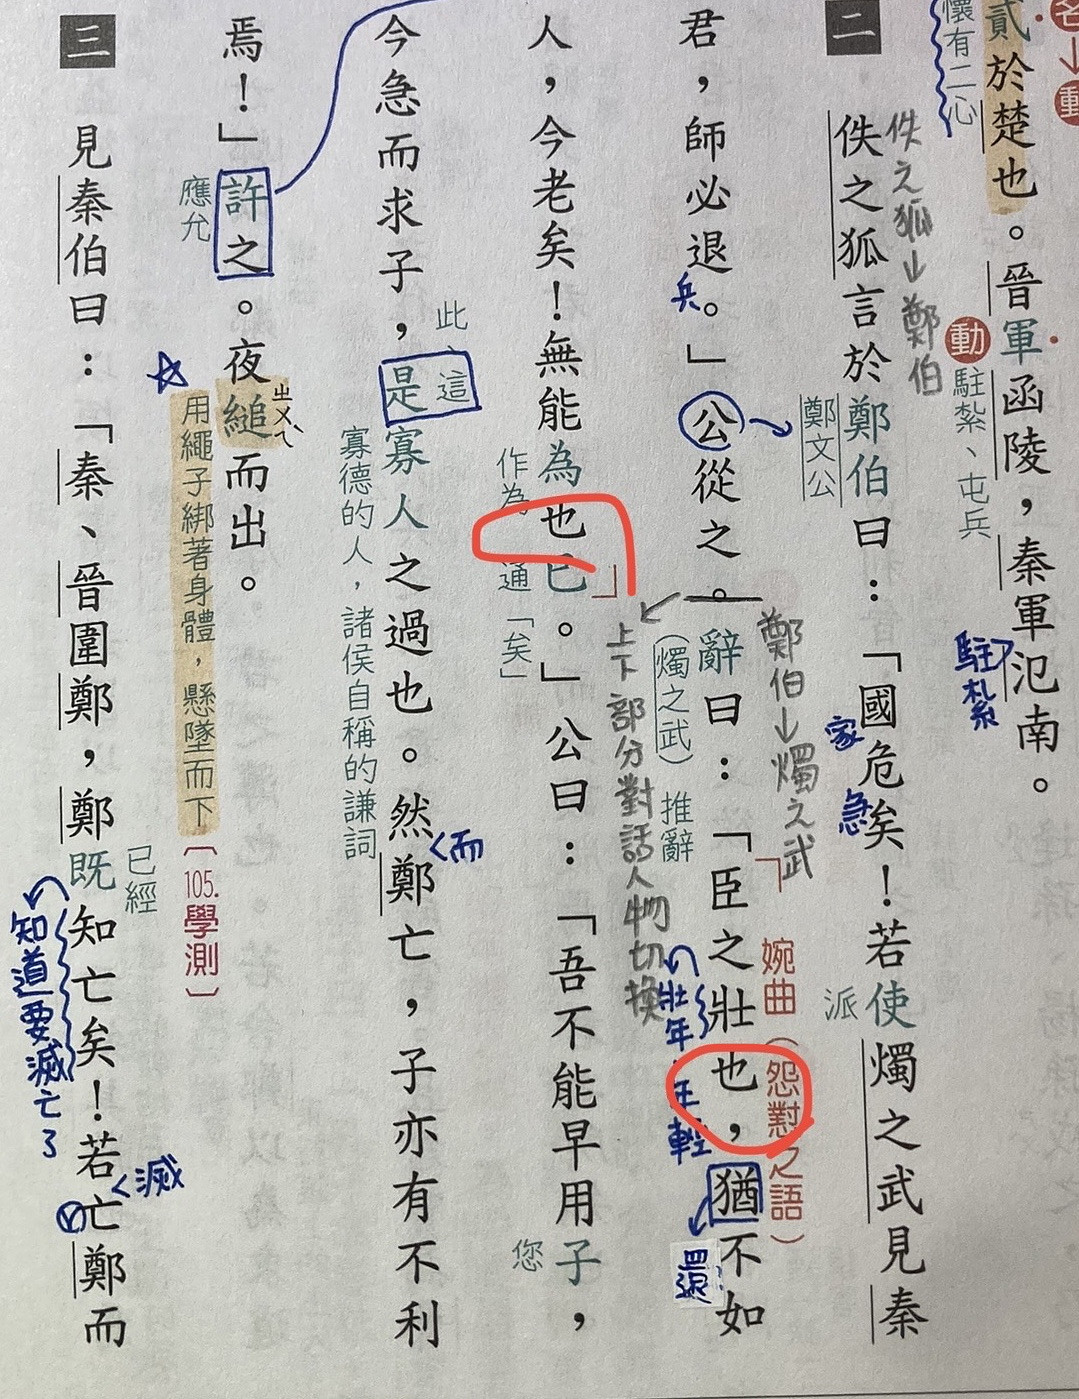 名↓動
貳於楚也。晉軍函陵，秦軍氾南。
懷有二心
動 駐紮、屯兵
駐紮
佚之狐↓鄭伯
二
佚之狐言於鄭伯曰：「國危矣！若使燭之武見秦
鄭文公
家
急
派
鄭伯↓燭之武
君，師必退。」公從之。辭曰：「臣之壯也，猶不如
兵
（燭之武）推辭
婉曲（怨懟之語）
壯年
年輕
還
上下部分對話人物切換
人，今老矣！無能為也已。」公曰：「吾不能早用子，
作為
通「矣」
您
今急而求子，是寡人之過也。然鄭亡，子亦有不利
此、這
寡德的人，諸侯自稱的謙詞
而
焉！」許之。夜縋而出。
應允
ㄓㄨㄟˋ
用繩子綁著身體，懸墜而下〔105.學測〕
三
見秦伯曰：「秦、晉圍鄭，鄭既知亡矣！若亡鄭而
已經
知道要滅亡了
滅